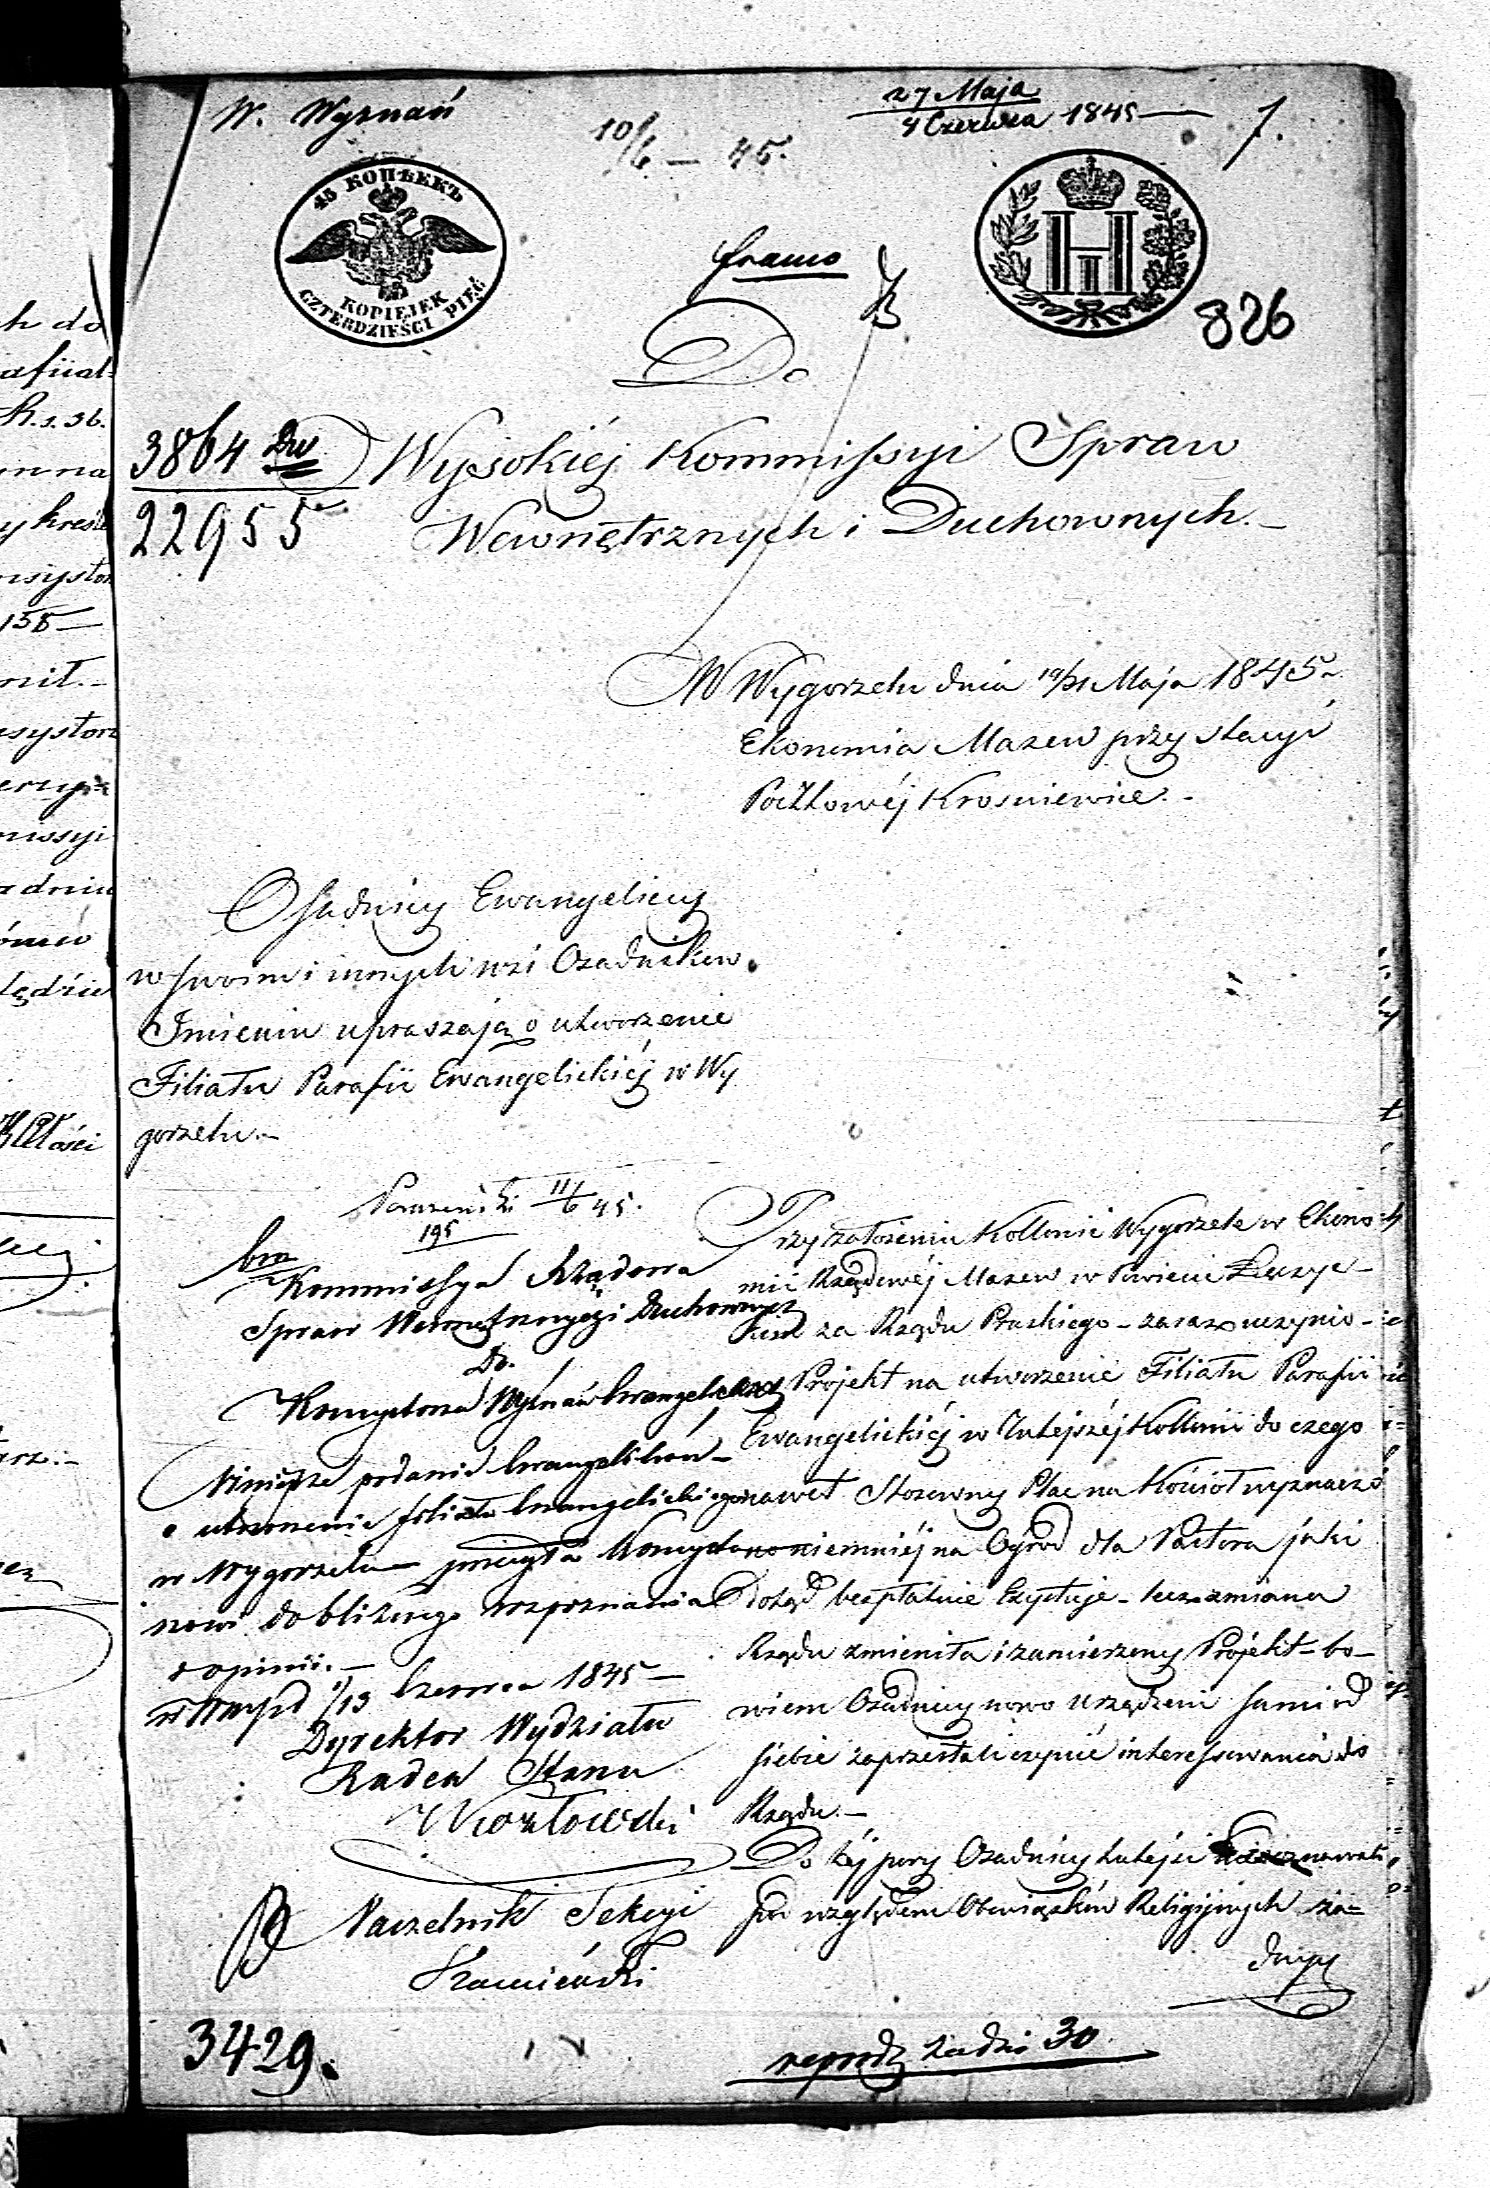 W. Wyznań
10/6 – 45.
27 Maja
4 Czerwca 1845 —
1.
45 КОПѢЕКЪ
KOPIEJEK
CZTERDZIEŚCI PIĘĆ
franco
826
Do
3864 Dw
22955
Wysokiéj Kommissyi Spraw
Wewnętrznych i Duchownych.–
W Wygorzelu dnia 19/31 Maja 1845.
Ekonomia Mazew przy stacyi
Pocztowéj Krosniewice.–
Osadnicy Ewangeliccy
w swoim i innych wsi Osadników
Imieniu upraszają o utworzenie
Filiału Parafii Ewangelickiéj w Wy
gorzelu.–
11/6 45.
195
Kommissya Rządowa
Spraw Wewnętrznych i Duchownych
Do
Konsystorza Wyznań Ewangelickich
Niniejsze podanie Ewangelików
o utworzenie filiału Ewangelickiego
w Wygorzelu – przesyła Konsysto
rzowi do bliższego rozpoznania
i opinii.–
1/13 Czerwca 1845 –
Dyrektor Wydziału
Radca Stanu
Naczelnik Sekcyi
3429.
Przy założeniu Kollonii Wygorzele w Ekono
mii Rządowéj Mazew w Powiecie Łęczyc-
kim za Rządu Pruskiego – zaraz uczynio-
Projekt na utworzenie Filiału Parafii
Ewangelickiéj w Tutejszéj Kollonii do czego
nawet Stosowny Plac na Kościół wyznaczo
no niemniéj na Ogród dla Pastora jaki
dotąd bezpłatnie Exystuje – lecz zmiana
Rządu zmieniła i zamierzony Projekt – bo-
wiem Osadnicy nowo urządzeni sami od
siebie zaprzestali czynić interessowania do
Rządu.–
Do téj pory Osadnicy tutejsi
pod względem Obowiązków Religijnych ża-
dnych
30